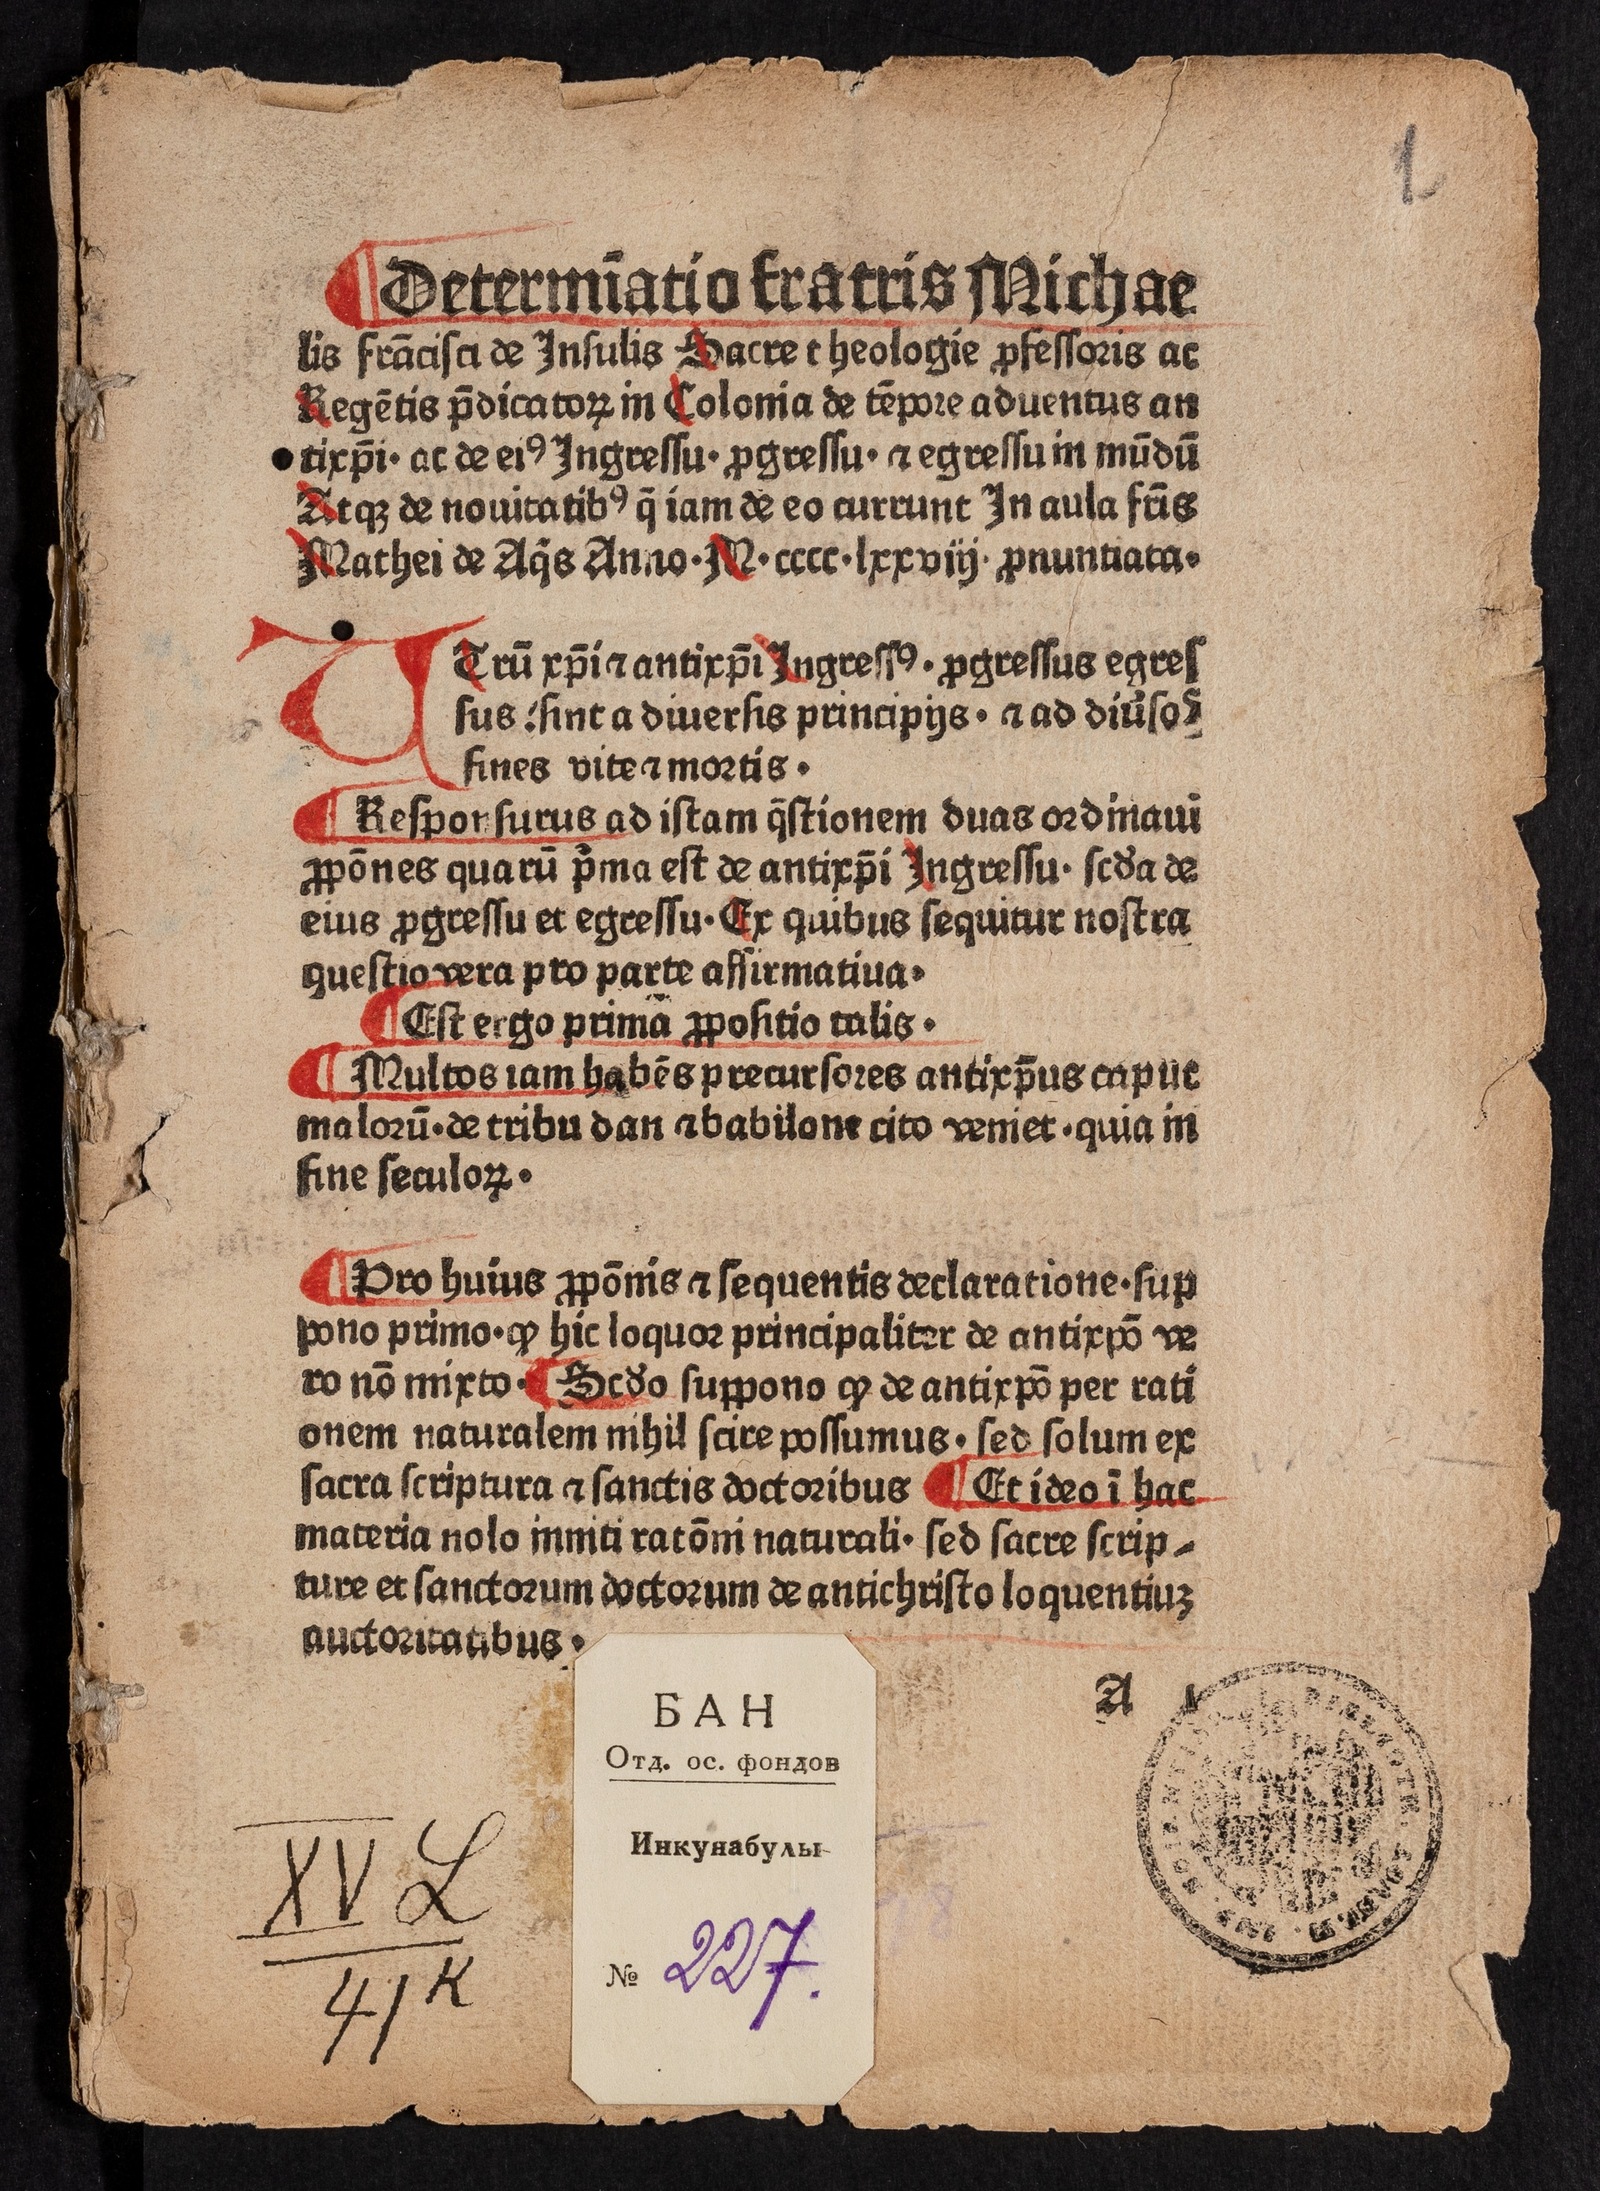 1
Determīatio fratris Michae
lis frācisci de Insulis Sacre theologie ꝓfessoris ac
Regētis p̄dicatoꝝ in Colonia de tēpore aduentus an
tixp̄i· ac de eiꝰ Ingressu· ꝓgressu· ⁊ egressu in mūdū
Atqꝫ de nouitatibꝰ q̄ iam de eo currunt In aula fr̄is
Mathei de Aq̄s Anno·M·cccc·lxxviij· ꝓnuntiata·
UTrū xp̄i ⁊ antixp̄i Ingressꝰ· ꝓgressus egres
sus :sint a diuersis principijs· ⁊ ad diūsoꝫ
fines vite ⁊ mortis·
Responsurus ad istam q̄stionem duas ordinaui
ꝓpōnes quarū p̄ma est de antixp̄i Ingressu· scđa de
eius ꝓgressu et egressu· Ex quibus sequitur nostra
questio vera pro parte affirmatiua·
Est ergo prima ꝓpositio talis·
Multos iam habēs precursores antixp̄us caput
malorū·de tribu dan ⁊ babilone cito veniet·quia in
fine seculoꝝ·
Pro huius ꝓpōnis ⁊ sequentis declaratione·sup
pono primo·ꝙ hic loquor principaliter de antixpō ve
ro nō mixto· Scđo suppono ꝙ de antixpō per rati
onem naturalem nihil scire possumus· sed solum ex
sacra scriptura ⁊ sanctis doctoribus Et ideo ī hac
materia nolo inniti ratōni naturali· sed sacre scrip-
ture et sanctorum doctorum de antichristo loquentiuꝫ
auctoritatibus·
A
БАН
Отд. ос. фондов
Инкунабулы
№ 227.
XV L
41 K